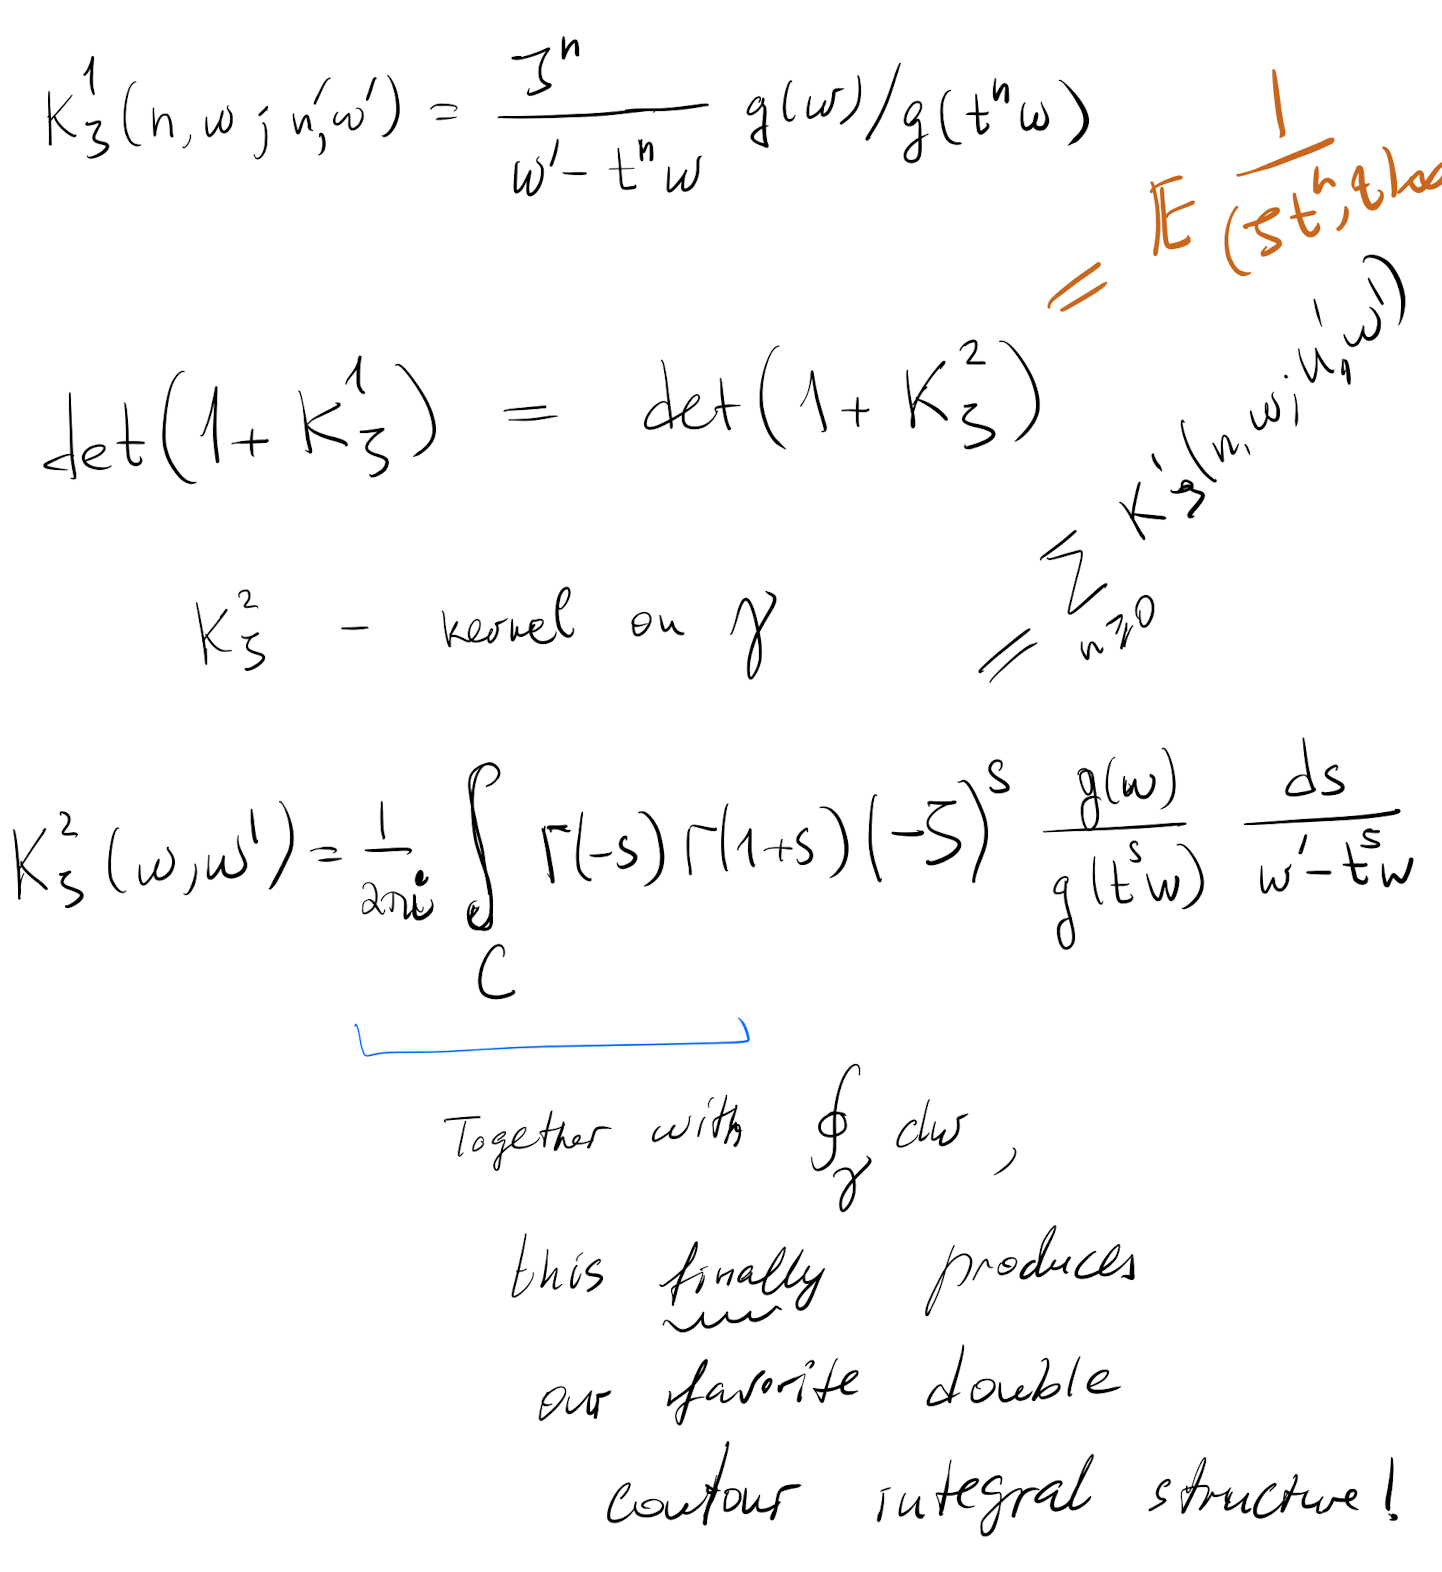 K_ζ^1(n, w; n', w') = ζ^n / (w' - t^n w) g(w)/g(t^n w)
= 𝔼 1 / (ζt^h, t)_∞
det(1 + K_ζ^1) = det(1 + K_ζ^2)
K_ζ^2 - kernel on γ
= Σ_{n≥0} K_ζ^1(n, w; n', w')
K_ζ^2(w, w') = 1/(2πi) ∫_C Γ(-s) Γ(1+s) (-ζ)^s g(w)/g(t^s w) ds/(w' - t^s w)
Together with ∮_γ dw,
this finally produces
our favorite double
contour integral structure!